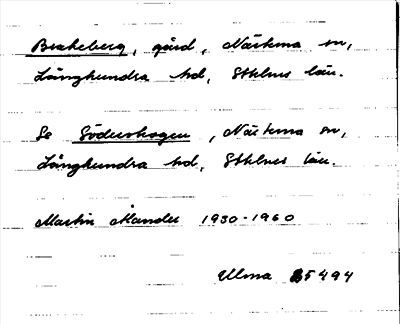 Brakeberg, gård, Närtuna sn,
Långhundra hd, Sthlms län.
Se Söderskogen, Närtuna sn,
Långhundra hd, Sthlms län.
Martin Mander 1930-1960
Ulma 5494